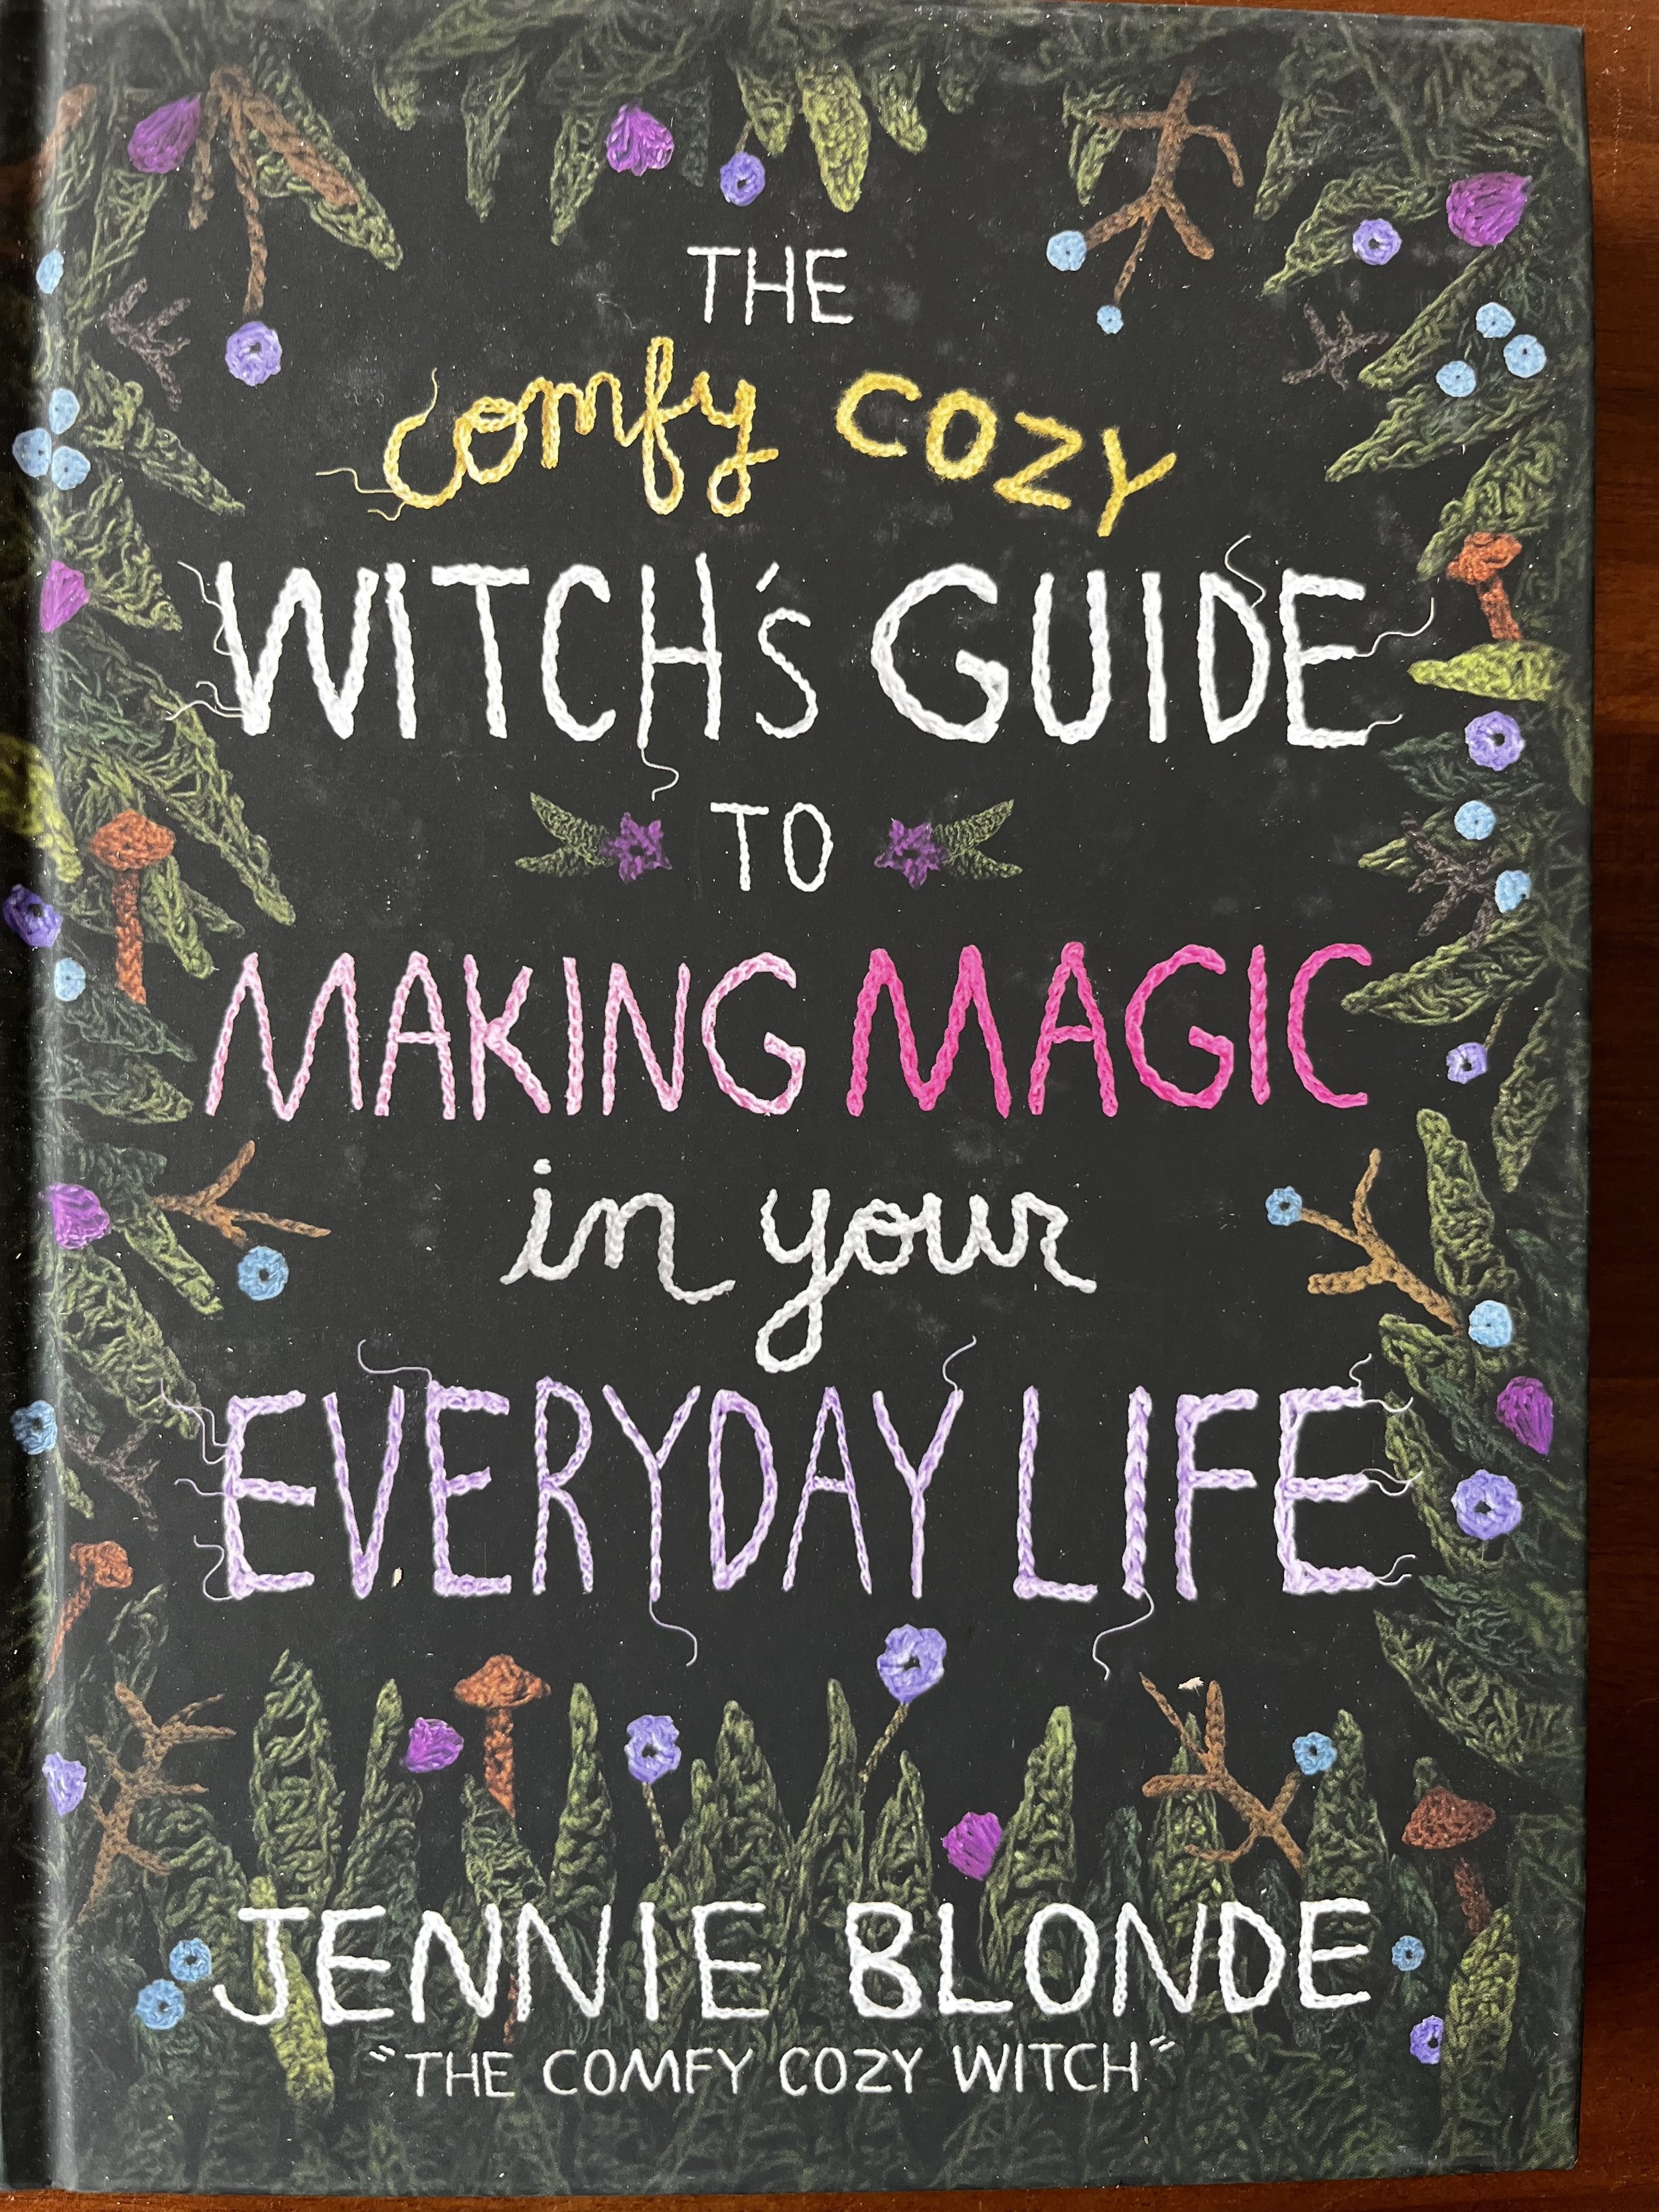 THE
comfy COZY
WITCH's GUIDE
TO
MAKING MAGIC
in your
EVERYDAY LIFE
JENNIE BLONDE
"THE COMFY COZY WITCH"